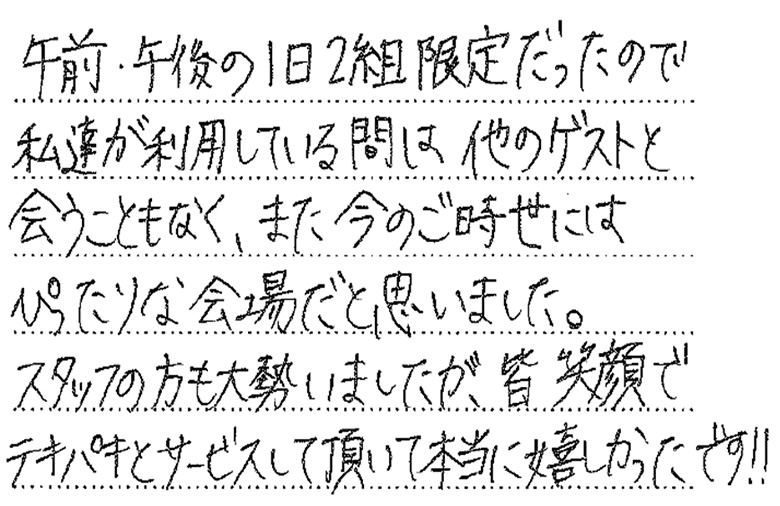 午前・午後の1日2組限定だったので
私達が利用している間は 他のゲストと
会うこともなく、また今のご時世には
ぴったりな会場だと思いました。
スタッフの方も大勢いましたが、皆笑顔で
テキパキとサービスして頂いて本当に嬉しかったです!!